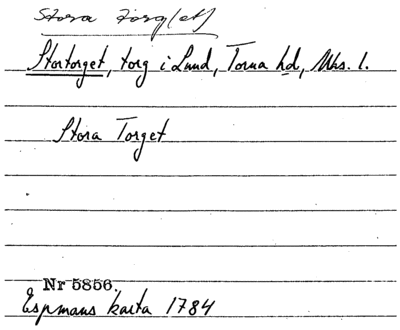 Stora torg(et)
Stortorget, torg i Lund, Torna hd, Mhs. l.
Stora Torget
Nr 5856.
Espmans karta 1784